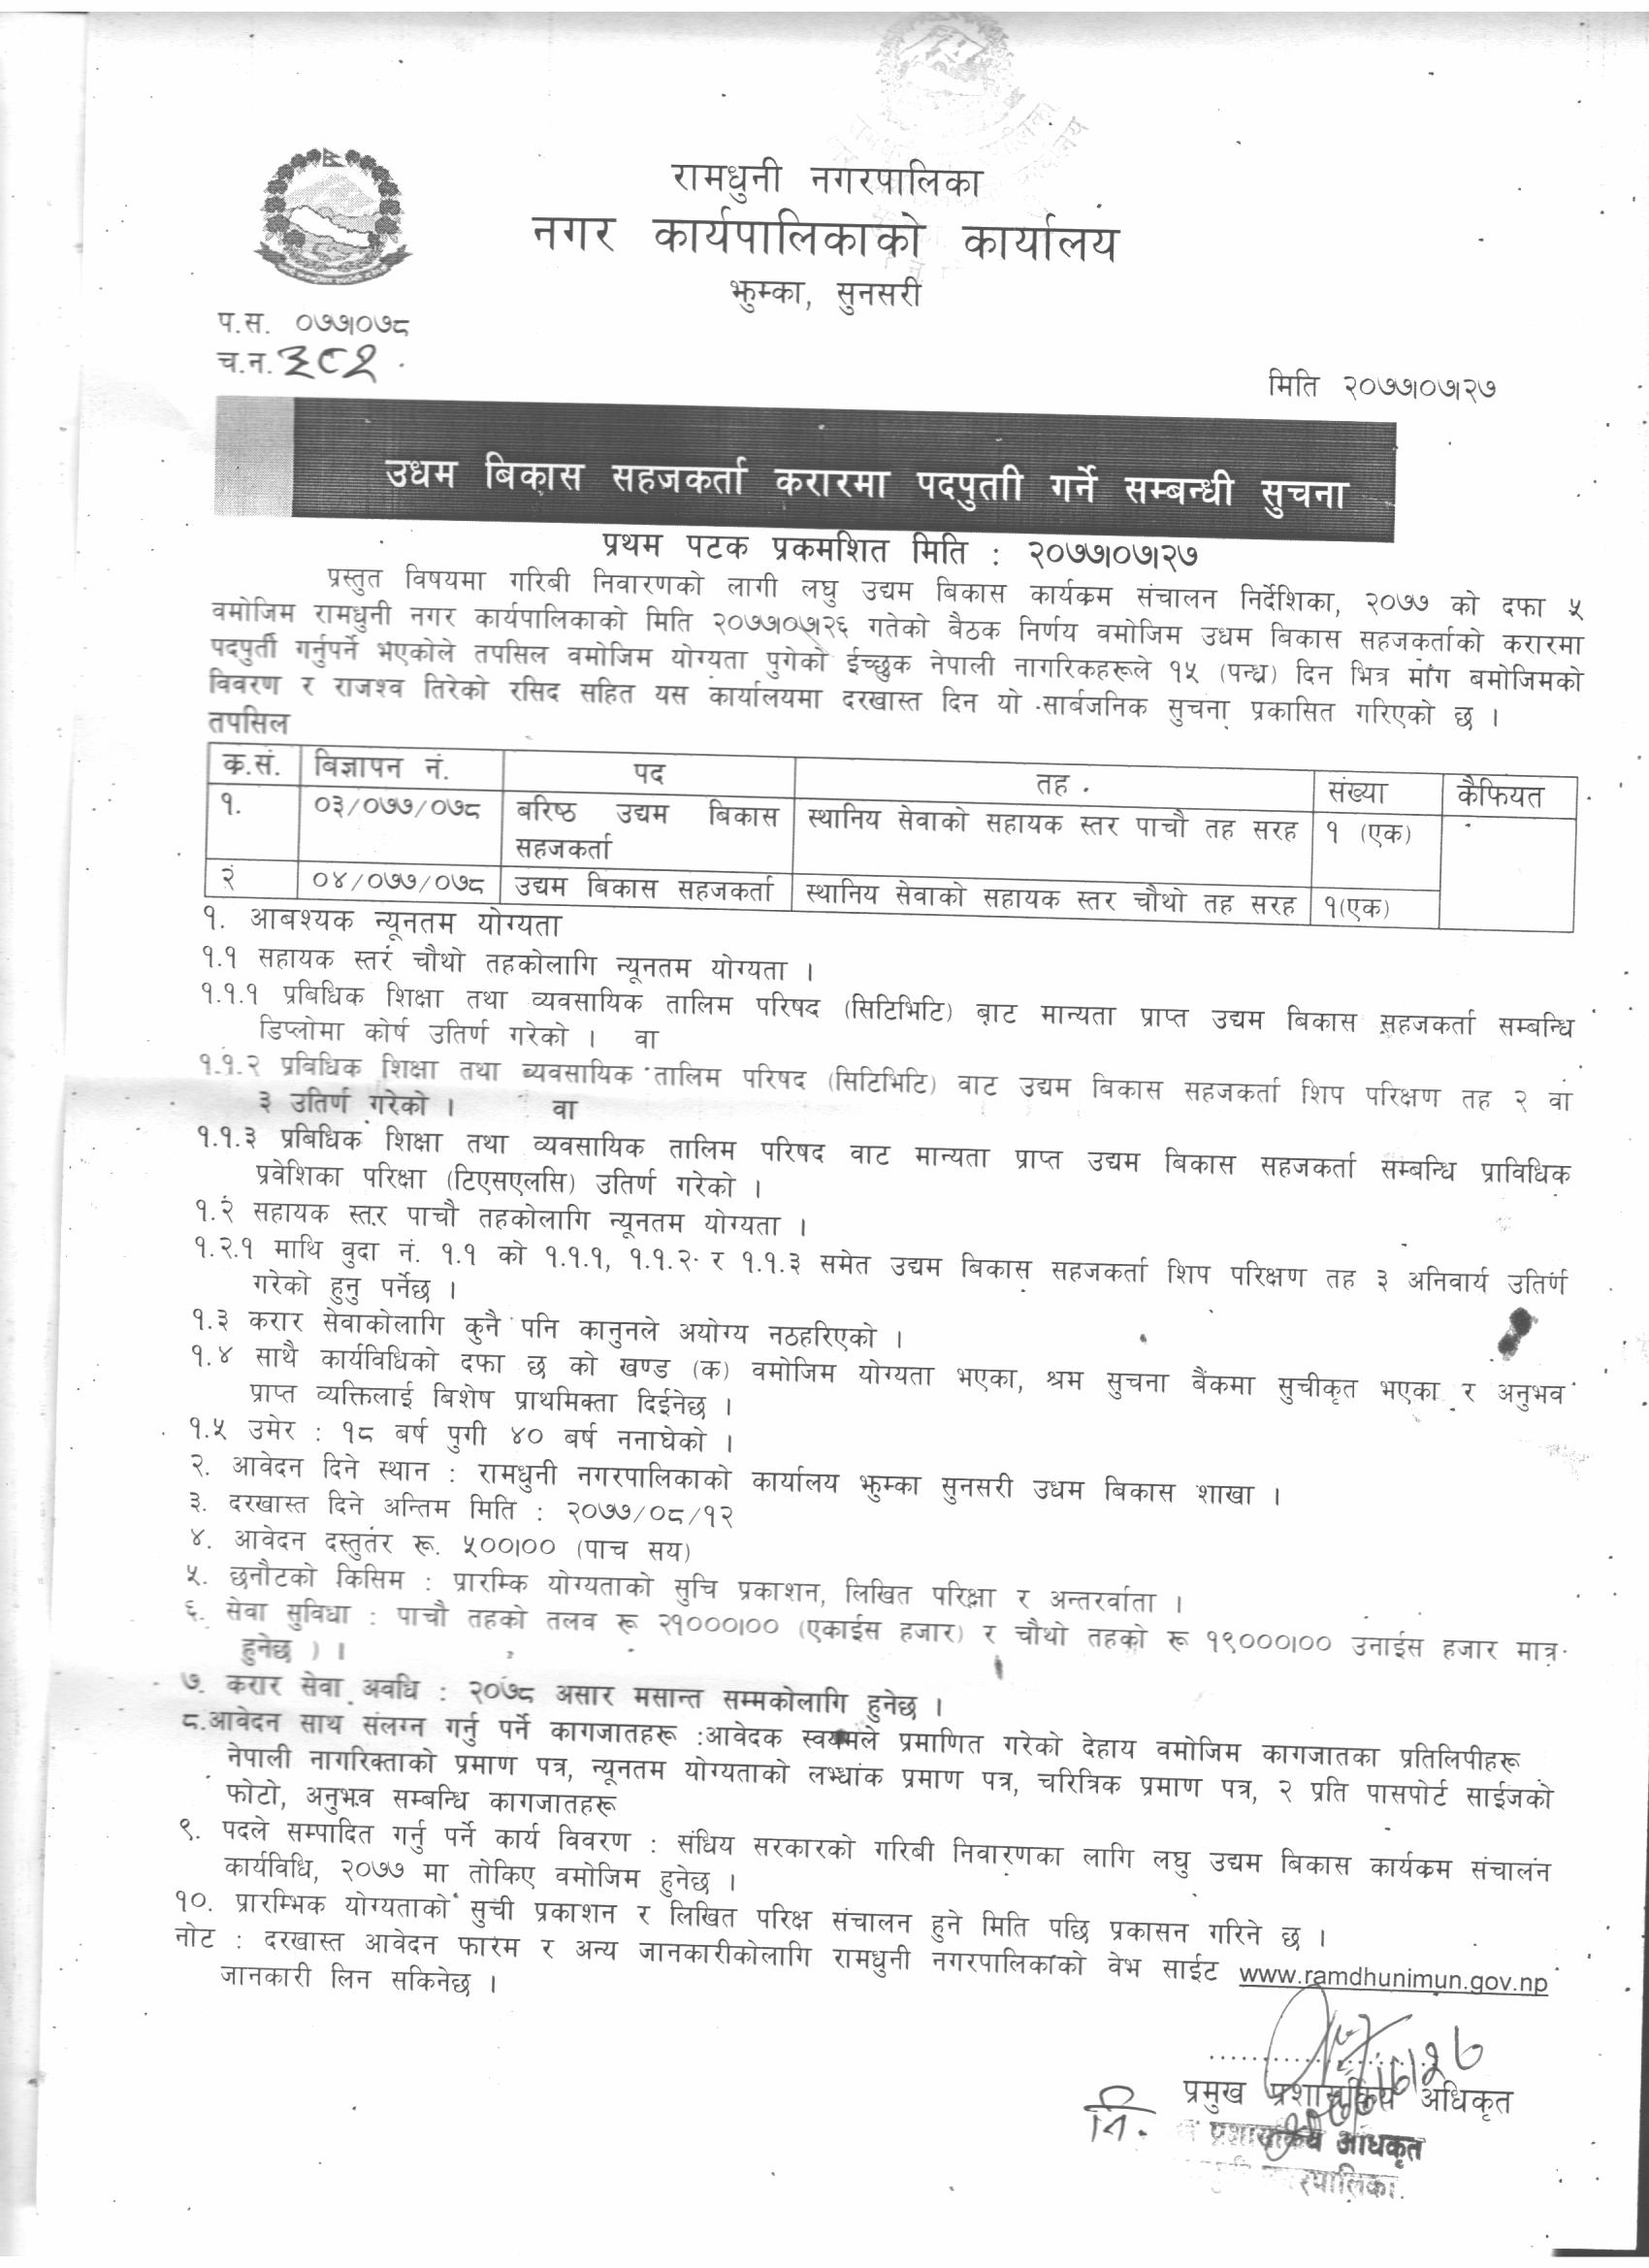 रामधुनी नगरपालिका
नगर कार्यपालिकाको कार्यालय
झुम्का, सुनसरी
प.स. ०७७।०७८
च.न. ३८१
मिति २०७७।०७।२७
उधम बिकास सहजकर्ता करारमा पदपुर्ताी गर्ने सम्बन्धी सुचना
प्रथम पटक प्रकमशित मिति : २०७७।०७।२७
प्रस्तुत विषयमा गरिबी निवारणको लागी लघु उद्यम बिकास कार्यक्रम संचालन निर्देशिका, २०७७ को दफा ५
वमोजिम रामधुनी नगर कार्यपालिकाको मिति २०७७।०७।२६ गतेको बैठक निर्णय वमोजिम उधम बिकास सहजकर्ताको करारमा
पदपुर्ती गर्नुपर्ने भएकोले तपसिल वमोजिम योग्यता पुगेको ईच्छुक नेपाली नागरिकहरूले १५ (पन्ध्र) दिन भित्र मांग बमोजिमको
विवरण र राजश्व तिरेको रसिद सहित यस कार्यालयमा दरखास्त दिन यो सार्बजनिक सुचना प्रकासित गरिएको छ ।
तपसिल
क्र.सं. बिज्ञापन नं. पद तह संख्या कैफियत
१. ०३/०७७/०७८ बरिष्ठ उद्यम बिकास स्थानिय सेवाको सहायक स्तर पाचौ तह सरह १ (एक)
सहजकर्ता
२ ०४/०७७/०७८ उद्यम बिकास सहजकर्ता स्थानिय सेवाको सहायक स्तर चौथो तह सरह १(एक)
१. आबश्यक न्यूनतम योग्यता
१.१ सहायक स्तर चौथो तहकोलागि न्यूनतम योग्यता ।
१.१.१ प्रबिधिक शिक्षा तथा व्यवसायिक तालिम परिषद (सिटिभिटि) बाट मान्यता प्राप्त उद्यम बिकास सहजकर्ता सम्बन्धि
डिप्लोमा कोर्ष उतिर्ण गरेको । वा
१.१.२ प्रबिधिक शिक्षा तथा ब्यवसायिक तालिम परिषद (सिटिभिटि) वाट उद्यम बिकास सहजकर्ता शिप परिक्षण तह २ वा
३ उतिर्ण गरेको । वा
१.१.३ प्रबिधिक शिक्षा तथा व्यवसायिक तालिम परिषद वाट मान्यता प्राप्त उद्यम बिकास सहजकर्ता सम्बन्धि प्राविधिक
प्रवेशिका परिक्षा (टिएसएलसि) उतिर्ण गरेको ।
१.२ सहायक स्तर पाचौ तहकोलागि न्यूनतम योग्यता ।
१.२.१ माथि वुदा नं. १.१ को १.१.१, १.१.२ र १.१.३ समेत उद्यम बिकास सहजकर्ता शिप परिक्षण तह ३ अनिवार्य उतिर्ण
गरेको हुनु पर्नेछ ।
१.३ करार सेवाकोलागि कुनै पनि कानुनले अयोग्य नठहरिएको ।
१.४ साथै कार्यविधिको दफा छ को खण्ड (क) वमोजिम योग्यता भएका, श्रम सुचना बैंकमा सुचीकृत भएका र अनुभव
प्राप्त व्यक्तिलाई बिशेष प्राथमिक्ता दिईनेछ ।
१.५ उमेर : १८ बर्ष पुगी ४० बर्ष ननाघेको ।
२. आवेदन दिने स्थान : रामधुनी नगरपालिकाको कार्यालय झुम्का सुनसरी उधम बिकास शाखा ।
३. दरखास्त दिने अन्तिम मिति : २०७७/०८/१२
४. आवेदन दस्तुतर रू. ५००।०० (पाच सय)
५. छनौटको किसिम : प्रारम्कि योग्यताको सुचि प्रकाशन, लिखित परिक्षा र अन्तरर्वाता ।
६. सेवा सुविधा : पाचौ तहको तलव रू २१०००।०० (एकाईस हजार) र चौथो तहको रू १९०००।०० उनाईस हजार मात्र
हुनेछ ) ।
७. करार सेवा अवधि : २०७८ असार मसान्त सम्मकोलागि हुनेछ ।
८.आवेदन साथ संलग्न गर्नु पर्ने कागजातहरू :आवेदक स्वयमले प्रमाणित गरेको देहाय वमोजिम कागजातका प्रतिलिपीहरू
नेपाली नागरिक्ताको प्रमाण पत्र, न्यूनतम योग्यताको लभ्धांक प्रमाण पत्र, चरित्रिक प्रमाण पत्र, २ प्रति पासपोर्ट साईजको
फोटो, अनुभव सम्बन्धि कागजातहरू
९. पदले सम्पादित गर्नु पर्ने कार्य विवरण : संधिय सरकारको गरिबी निवारणका लागि लघु उद्यम बिकास कार्यक्रम संचालन
कार्यविधि, २०७७ मा तोकिए वमोजिम हुनेछ ।
१०. प्रारम्भिक योग्यताको सुची प्रकाशन र लिखित परिक्ष संचालन हुने मिति पछि प्रकासन गरिने छ ।
नोट : दरखास्त आवेदन फारम र अन्य जानकारीकोलागि रामधुनी नगरपालिकाको वेभ साईट www.ramdhunimun.gov.np
जानकारी लिन सकिनेछ ।
प्रमुख प्रशासकिय अधिकृत
नि.
प्रशासकिय अधिकृत